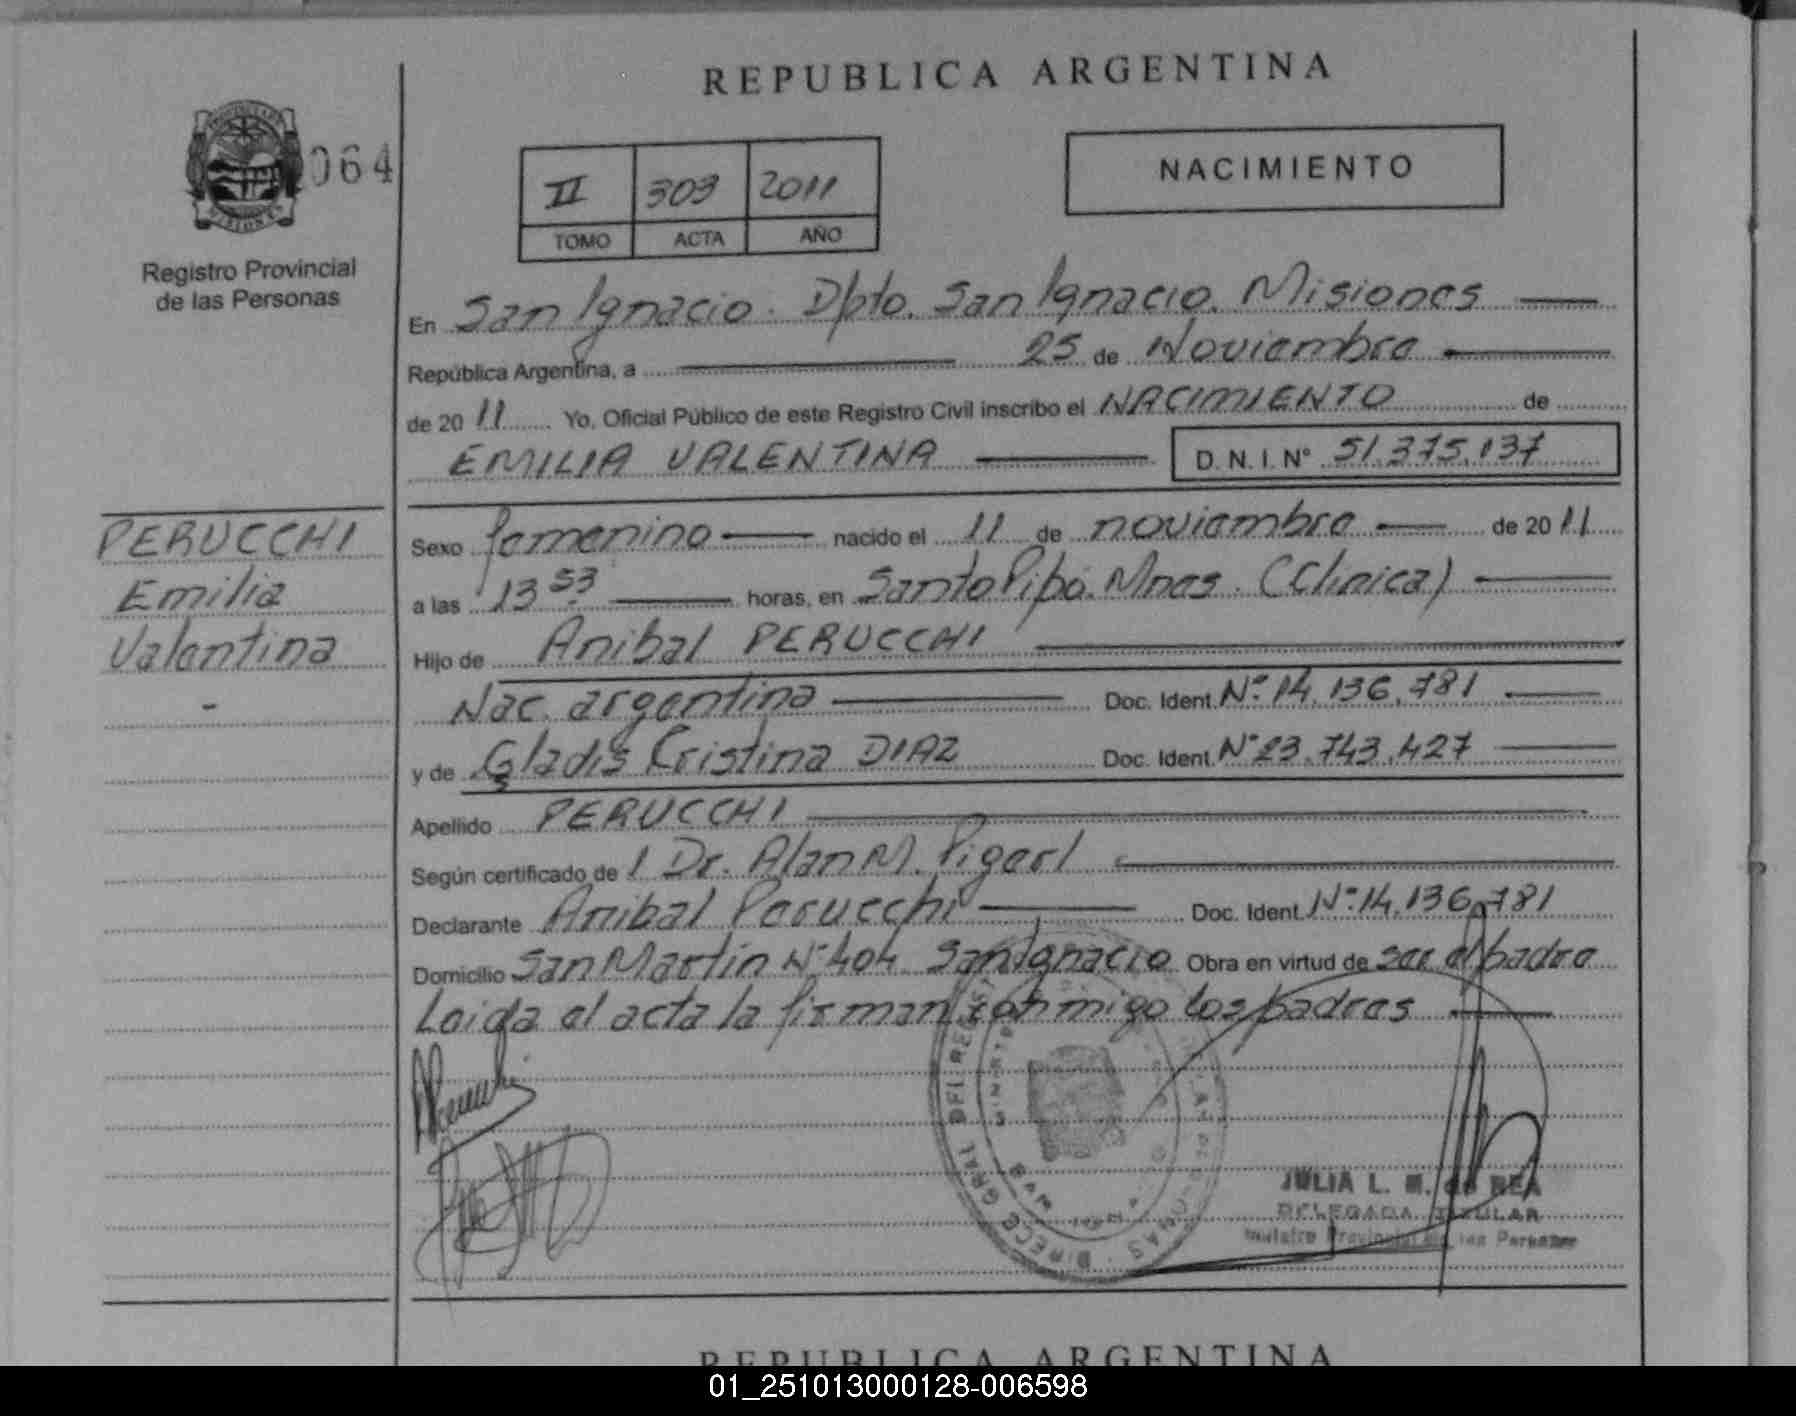 REPUBLICA ARGENTINA
064
NACIMIENTO
II 303 2011
TOMO ACTA AÑO
Registro Provincial
de las Personas
En San Ignacio. Dpto. San Ignacio. Misiones
República Argentina, a 25 de Noviembre
de 20 11 Yo, Oficial Público de este Registro Civil inscribo el NACIMIENTO de
EMILIA VALENTINA D.N.I. Nº 51.375.137
PERUCCHI
Emilia
Valentina
-
Sexo femenino nacido el 11 de noviembre de 20 11
a las 13 53 horas, en Santo Pipó. Mnes. (Clinica)
Hijo de Anibal PERUCCHI
Nac. argentina Doc. Ident. Nº 14.136.781
y de Gladis Cristina DIAZ Doc. Ident. Nº 23.743.427
Apellido PERUCCHI
Según certificado de l Dr. Alan M. Pigerl
Declarante Anibal Perucchi Doc. Ident. Nº 14.136.781
Domicilio San Martin Nº 404 San Ignacio Obra en virtud de ser el padre
Leida el acta la firman conmigo los padres
JULIA L. M. de REA
DELEGADA TITULAR
Registro Provincial de las Personas
REPUBLICA ARGENTINA
01_251013000128-006598